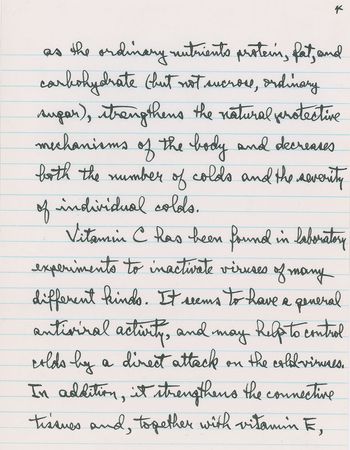 4
as the ordinary nutrients protein, fat, and
carbohydrate (but not sucrose, ordinary
sugar), strengthens the natural protective
mechanisms of the body and decreases
both the number of colds and the severity
of individual colds.
Vitamin C has been found in laboratory
experiments to inactivate viruses of many
different kinds. It seems to have a general
antiviral activity, and may help to control
colds by a direct attack on the cold viruses.
In addition, it strengthens the connective
tissues and, together with vitamin E,